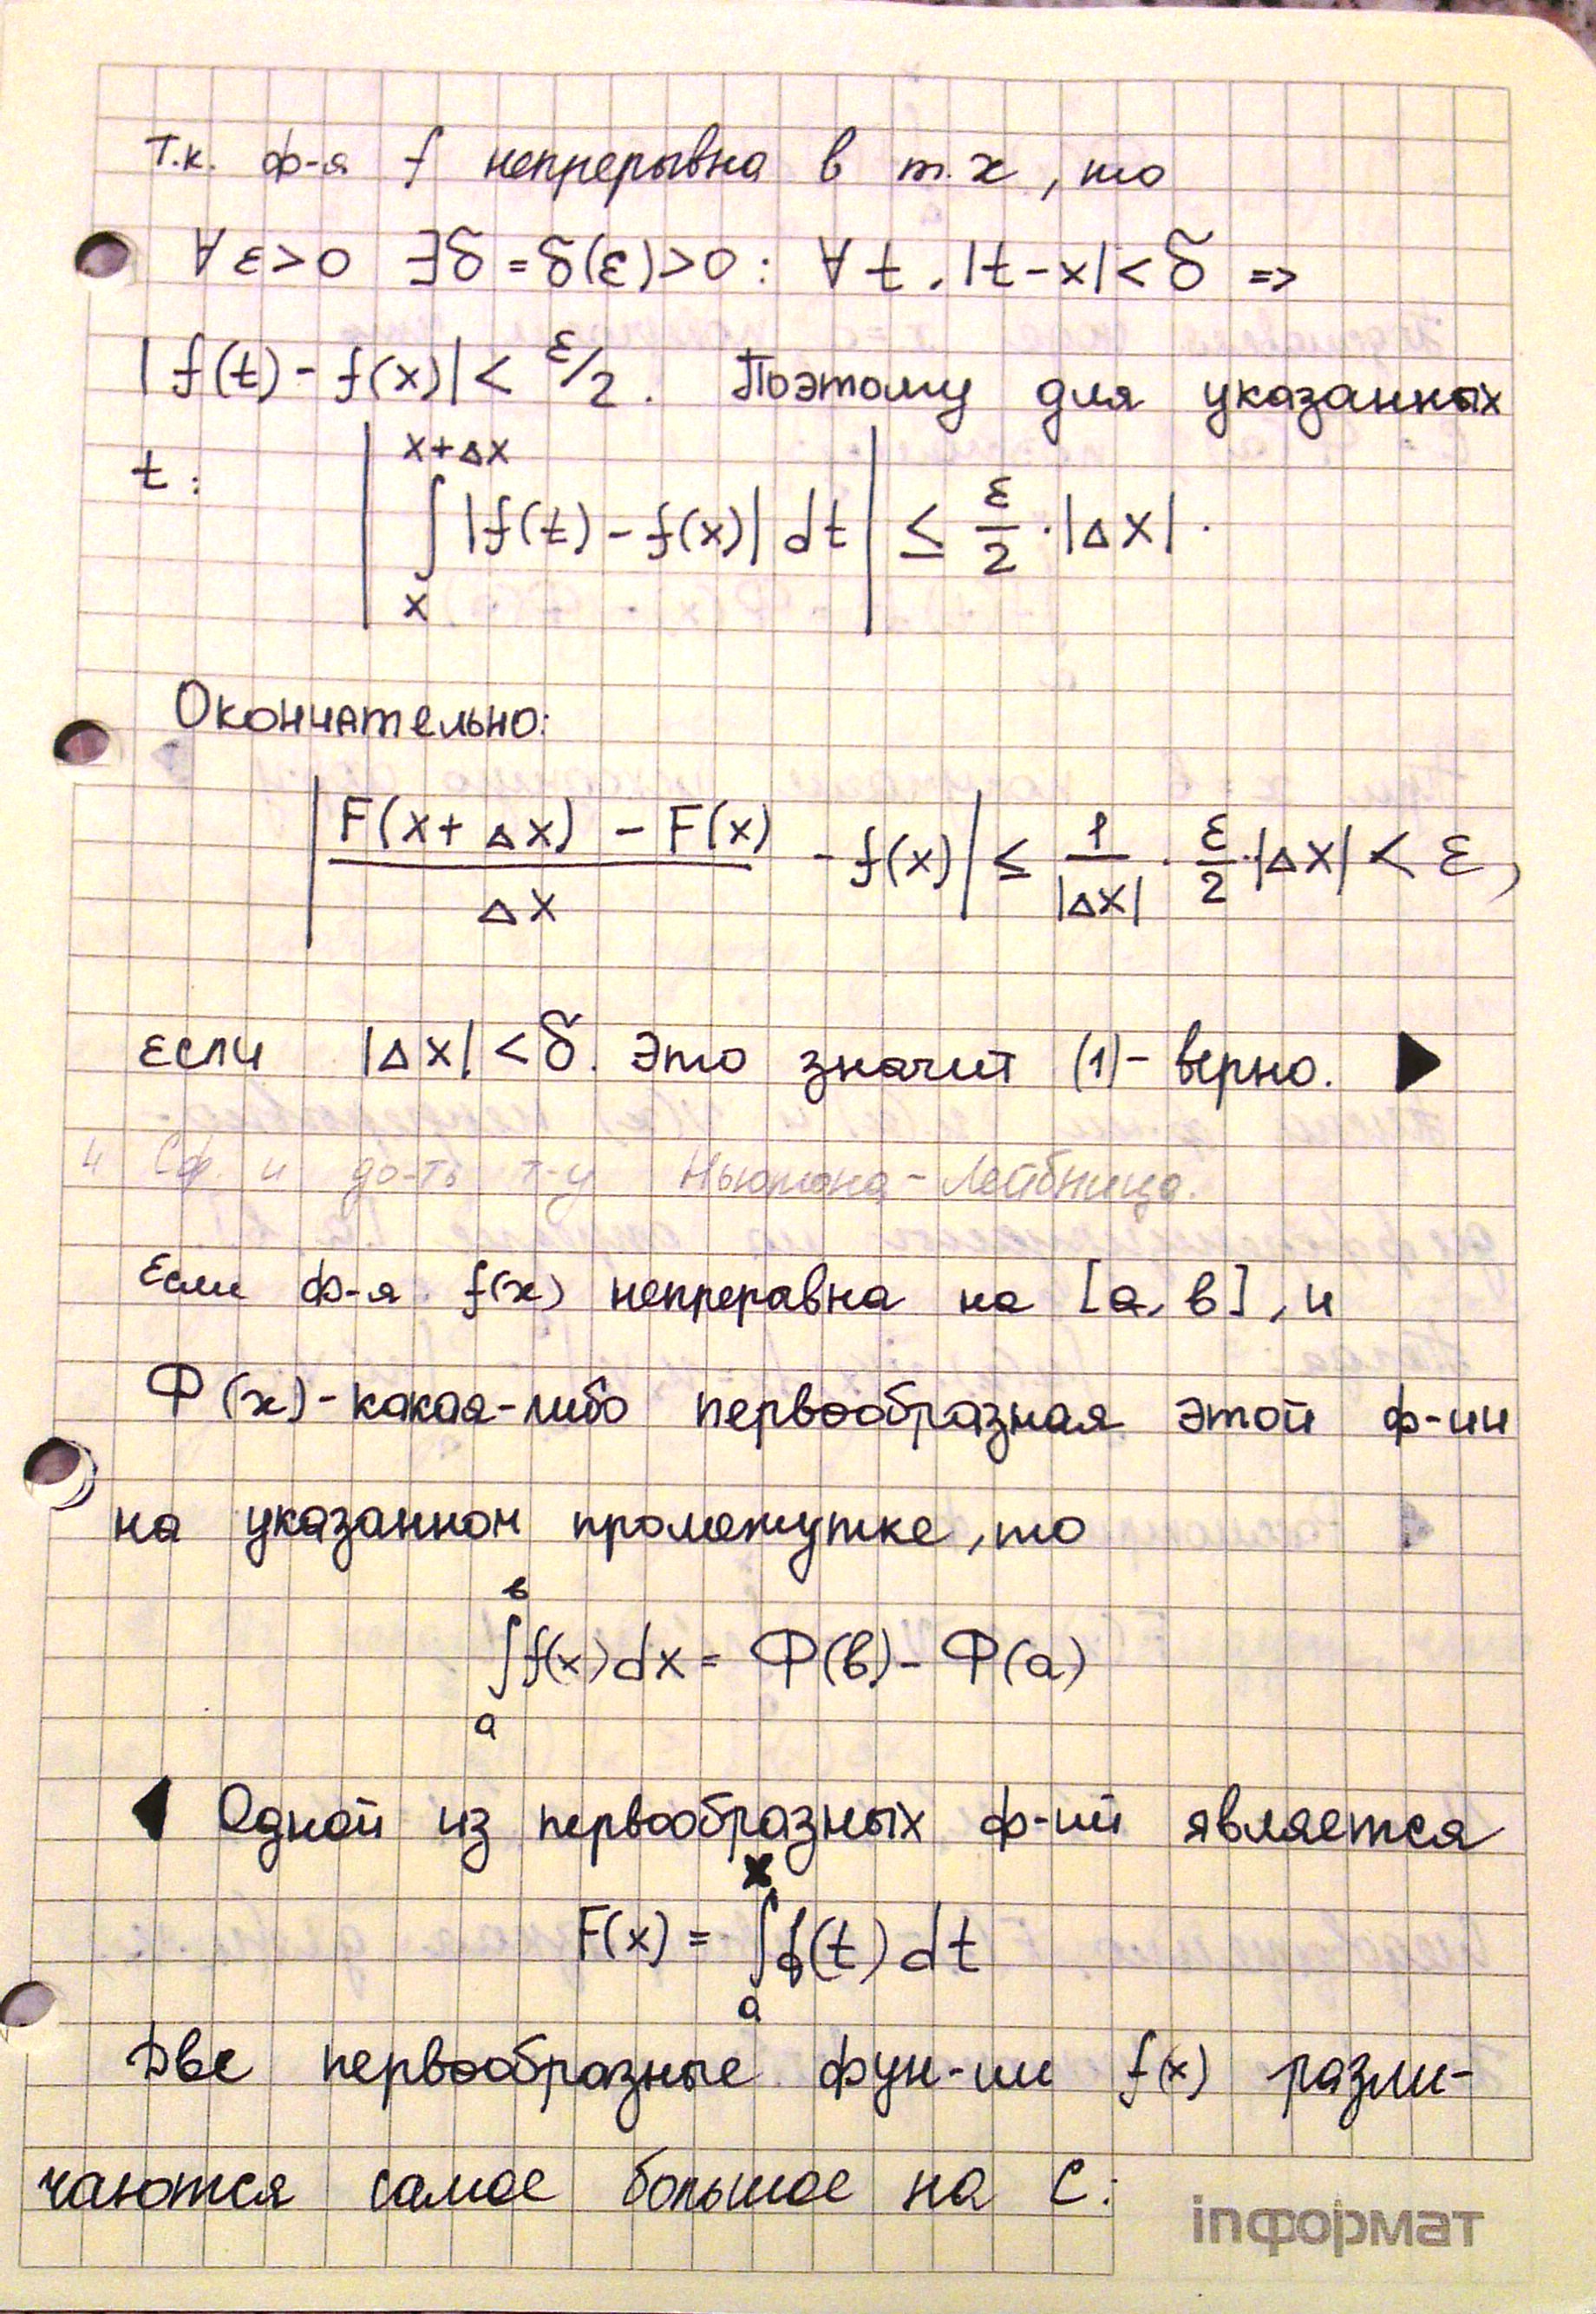 т.к. ф-я f непрерывна в т. x, то
∀ ε>0 ∃δ=δ(ε)>0: ∀ t, |t-x|<δ =>
|f(t) - f(x)| < ε/2. Поэтому для указанных
t: | ∫_x^{x+Δx} |f(t) - f(x)| dt | ≤ ε/2 · |Δx|.
Окончательно:
| (F(x+Δx) - F(x))/Δx - f(x) | ≤ 1/|Δx| · ε/2 · |Δx| < ε,
если |Δx| < δ. Это значит (1) - верно. ▶
4 Сф. и до-ть т-у Ньютона-Лейбница.
Если ф-я f(x) непреравна на [a, в], и
Ф(x) - какая-либо первообразная этой ф-ии
на указанном промежутке, то
∫_a^в f(x)dx = Ф(в) - Ф(a)
◀ Одной из первообразных ф-ий является
F(x) = ∫_a^x f(t) dt
Две первообразные фун-ии f(x) разли-
чаются самое большое на C:
inформат